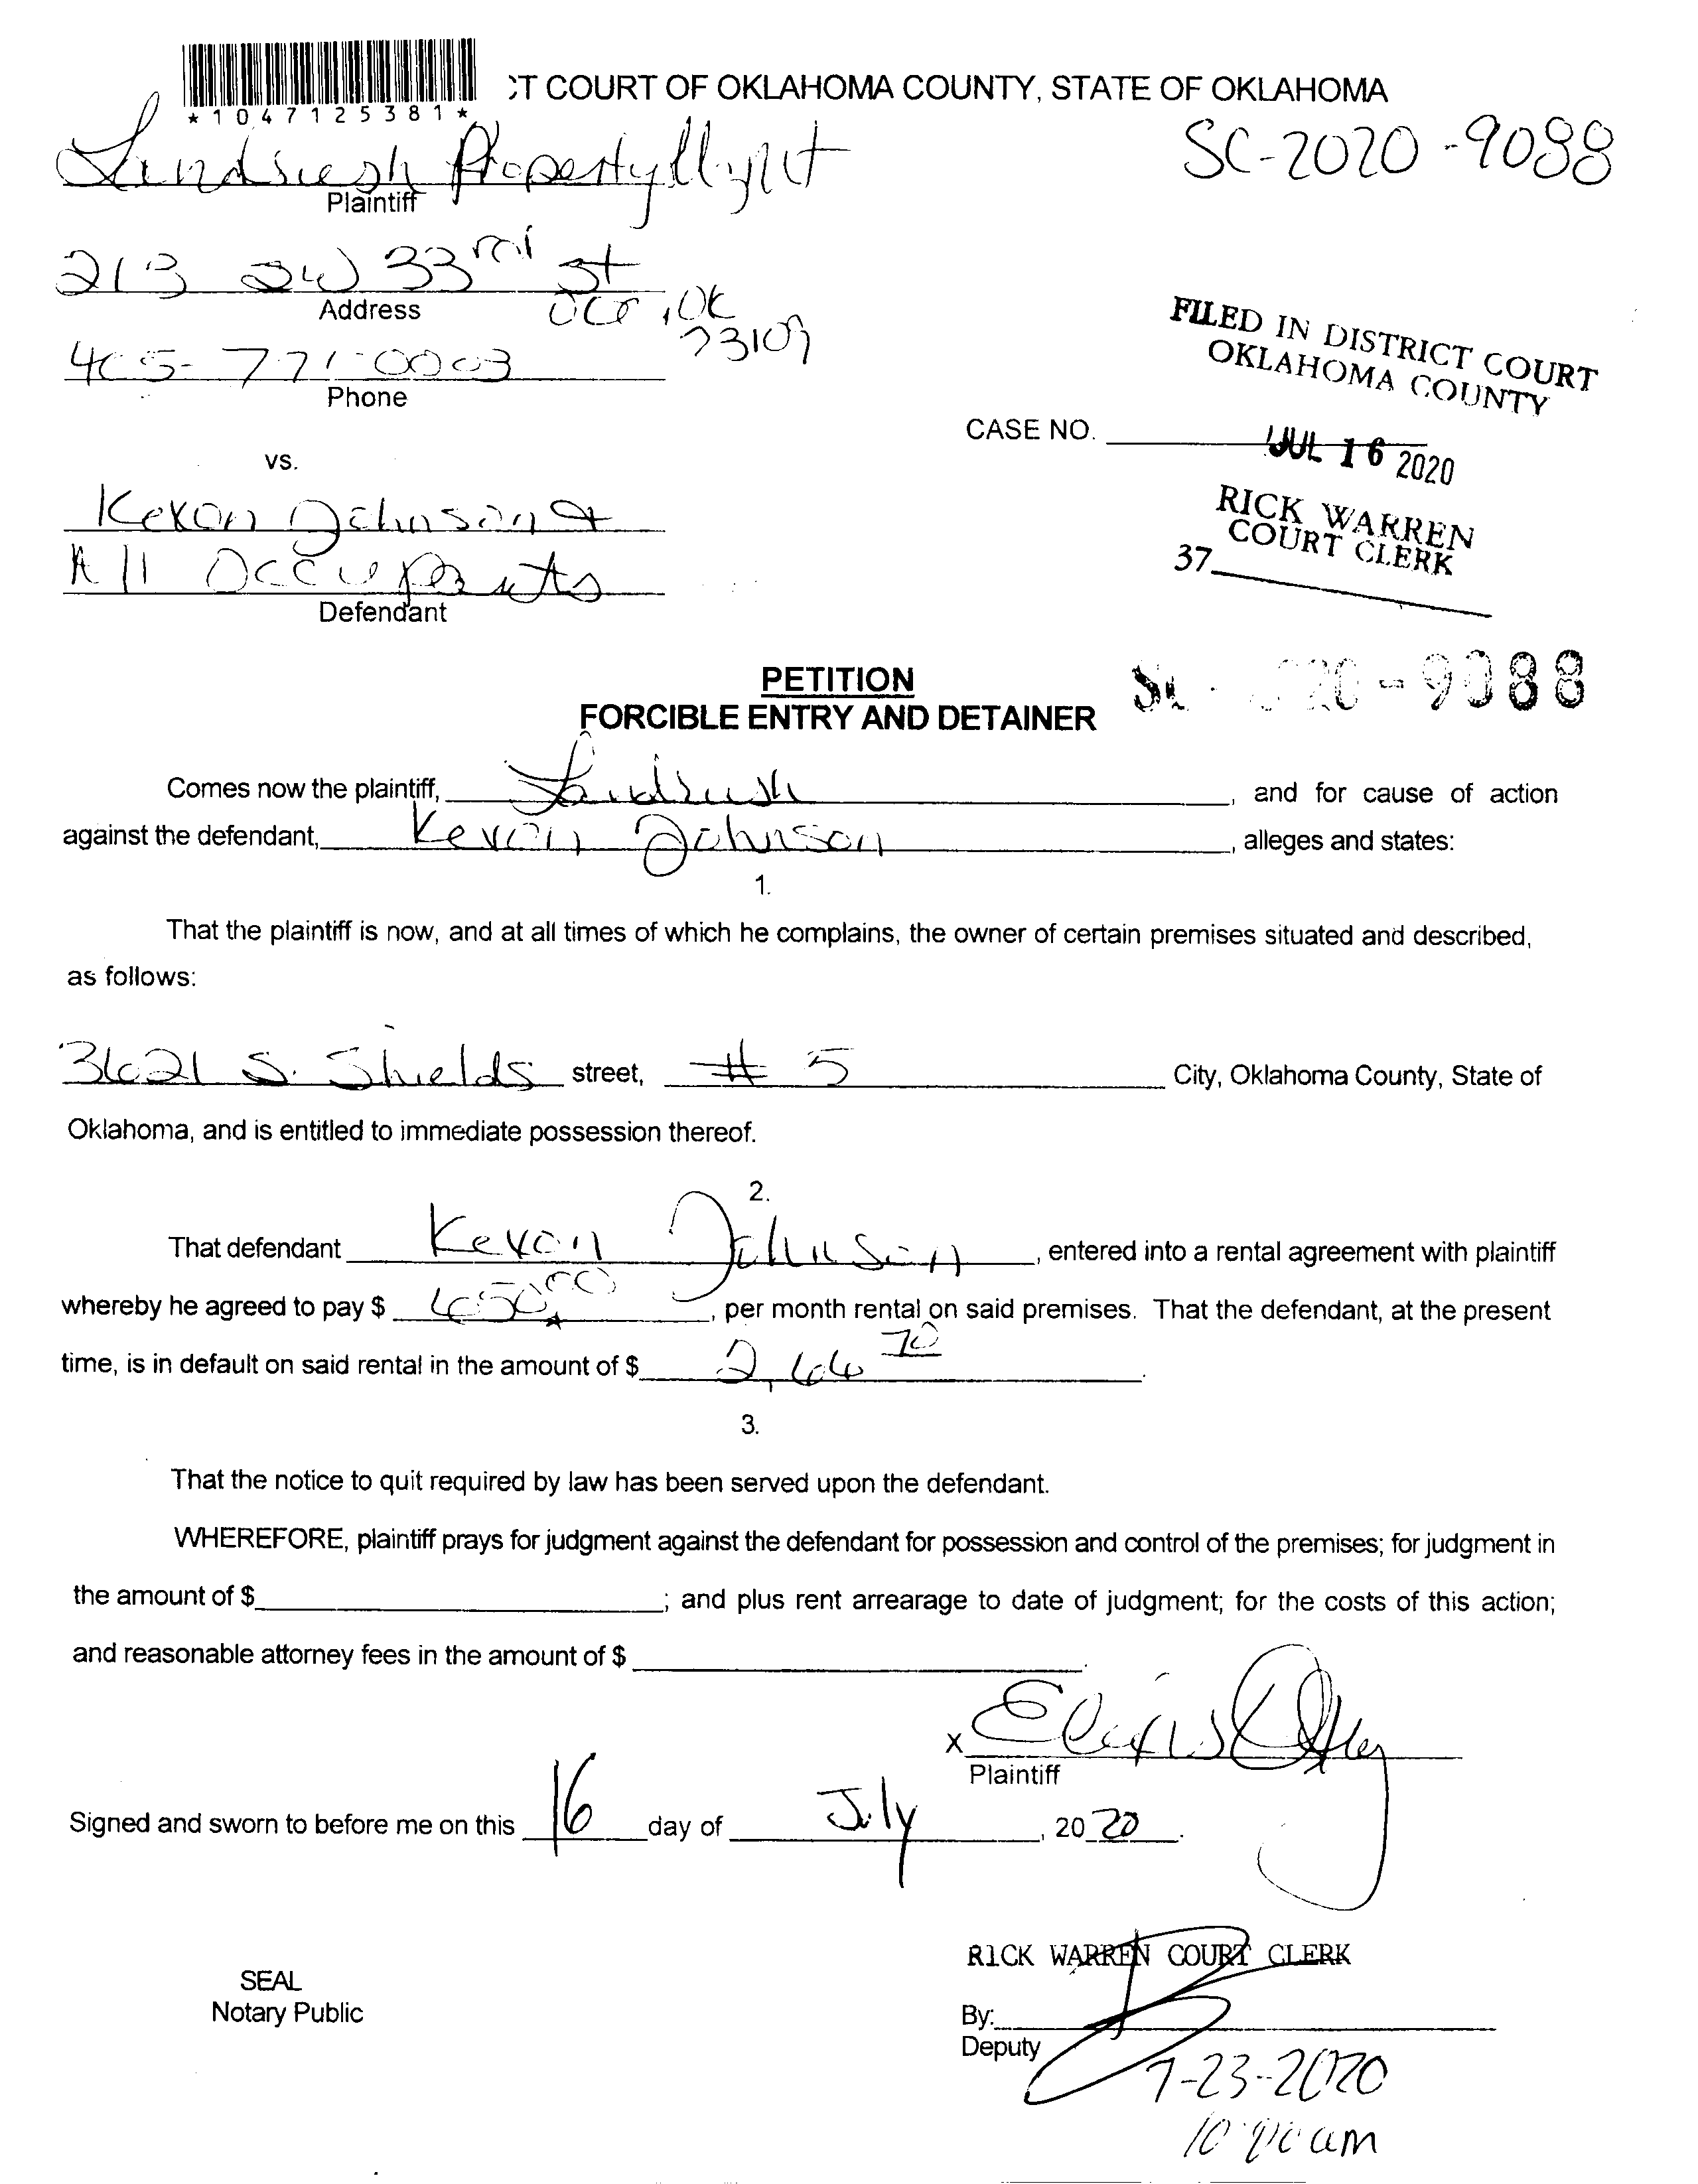 *1047125381*
CT COURT OF OKLAHOMA COUNTY, STATE OF OKLAHOMA
SC-2020-9088
Landrush Property Mgmt
Plaintiff
213 SW 33rd St
Address
OKC, OK
73109
405-771-0003
Phone
FILED IN DISTRICT COURT
OKLAHOMA COUNTY
CASE NO.
JUL 16 2020
vs.
RICK WARREN
COURT CLERK
37
Kevon Johnson &
All Occupants
Defendant
PETITION
FORCIBLE ENTRY AND DETAINER
SC - 2020-9088
Comes now the plaintiff, Landrush, and for cause of action
against the defendant, Kevon Johnson, alleges and states:
1.
That the plaintiff is now, and at all times of which he complains, the owner of certain premises situated and described,
as follows:
3621 S. Shields street, # 5 City, Oklahoma County, State of
Oklahoma, and is entitled to immediate possession thereof.
2.
That defendant Kevon Johnson, entered into a rental agreement with plaintiff
whereby he agreed to pay $ 650.00, per month rental on said premises. That the defendant, at the present
time, is in default on said rental in the amount of $
3.
That the notice to quit required by law has been served upon the defendant.
WHEREFORE, plaintiff prays for judgment against the defendant for possession and control of the premises; for judgment in
the amount of $ ; and plus rent arrearage to date of judgment; for the costs of this action;
and reasonable attorney fees in the amount of $ .
x
Plaintiff
Signed and sworn to before me on this 16 day of July, 2020.
RICK WARREN COURT CLERK
SEAL
Notary Public
By:
Deputy
7-23-2020